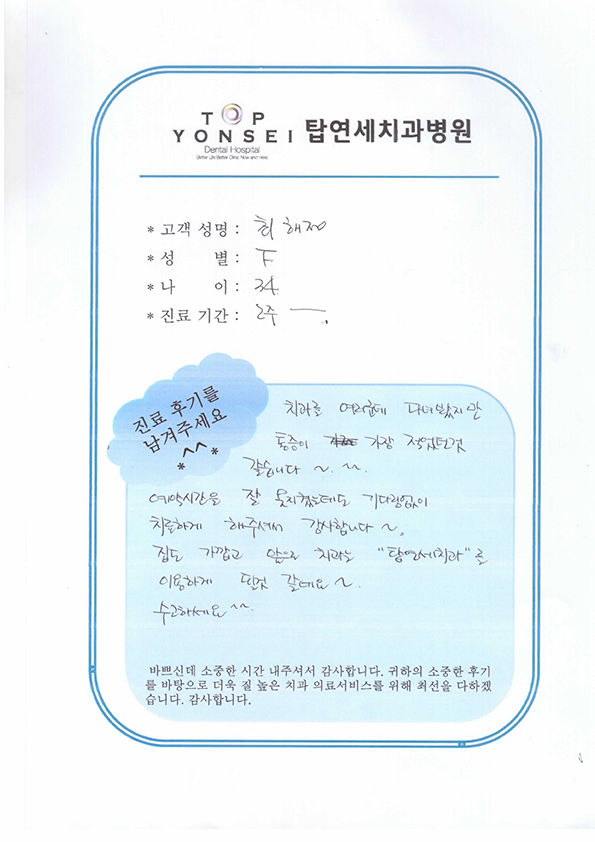 TOP
YONSEI 탑연세치과병원
Dental Hospital
Better Life Better Clinic Now and Here
* 고객 성명 : 최해정
* 성 별 : F
* 나 이 : 34.
* 진료 기간 : 2주
진료 후기를
남겨주세요
*^^*
치과를 여러군데 다녀봤지만
통증이 가장 적었던것
같습니다 ~ ^^.
예약시간을 잘 못지켰는데도 기다림없이
치료하게 해주셔서 감사합니다 ~.
집도 가깝고 앞으로 치과는 "탑연세치과"를
이용하게 될것 같네요 ~.
수고하세요 ^^.
바쁘신데 소중한 시간 내주셔서 감사합니다. 귀하의 소중한 후기
를 바탕으로 더욱 질 높은 치과 의료서비스를 위해 최선을 다하겠
습니다. 감사합니다.